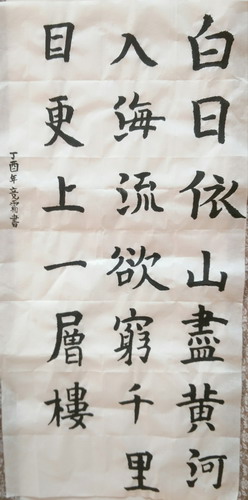 白日依山盡黄河
入海流欲窮千里
目更上一層樓
丁酉年 書